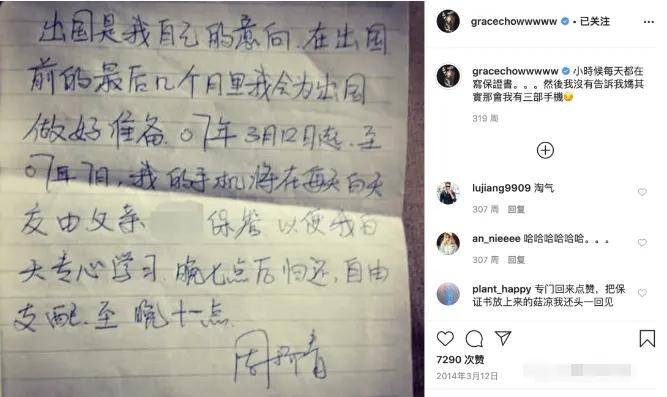 出国是我自己的意向.在出国
前的最后几个月里我会为出国
做好准备.07年3月12日起.至
07年7月,我的手机将在每天白天
交由父亲 保管 以便我白
天专心学习.晚七点后归还,自由
支配.至晚十一点.
周
青
gracechowwwww · 已关注
gracechowwwww 小時候每天都在
寫保證書。。。然後我沒有告訴我媽其
實那會我有三部手機😏
319 周
lujiang9909 淘气
307 周 回复
an_nieeee 哈哈哈哈哈哈。。。
307 周 回复
plant_happy 专门回来点赞，把保
证书放上来的菇凉我还头一回见
7290 次赞
2014年3月12日